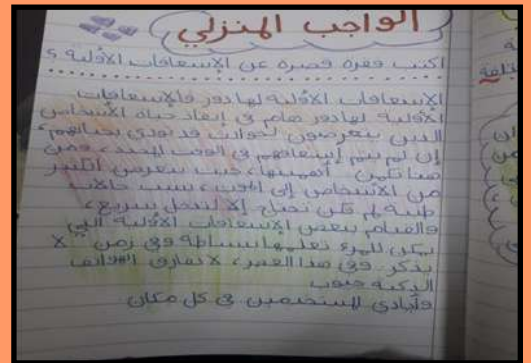 الواجب المنزلي
اكتب فقرة قصيرة عن الإسعافات الأولية ؟
الإسعافات الأولية لها دور فالإسعافات
الأولية لها دور هام في إنقاذ حياة الأشخاص
الذين يتعرضون لحوادث قد تودي بحياتهم،
إن لم يتم إسعافهم في الوقت المحدد، ومن
هنا تكمن أهميتها، حيث يتعرض الكثير
من الأشخاص إلى بسبب حالات
طبية لم تكن تحتاج إلا لتدخل سريع،
والقيام ببعض الإسعافات الأولية التي
يمكن للمرء تعلمها ببساطة وفي زمن لا
يذكر وفي هذا العصر، لا تفارق الهواتف
الذكية جيوب
وأيادي المستخدمين في كل مكان